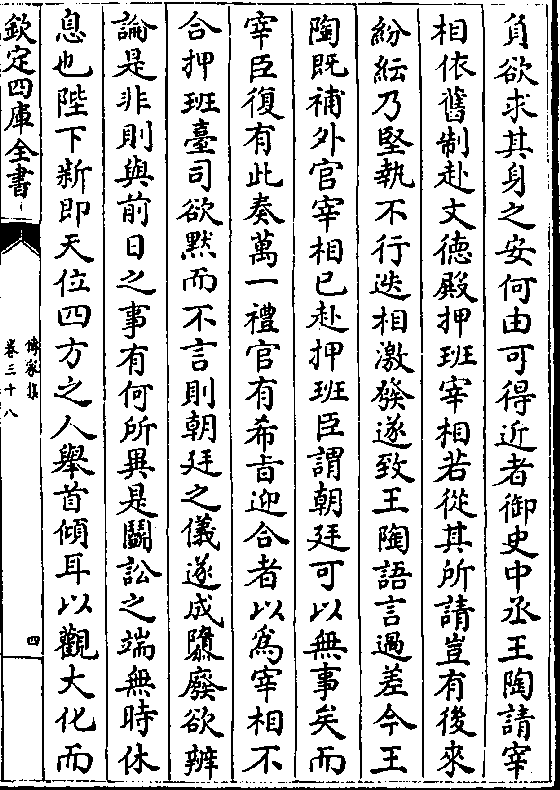 負欲求其身之安何由可得近者御史中丞王陶請宰
相依舊制赴文德殿押班宰相若從其所請豈有後來
紛紜乃堅執不行迭相激發遂致王陶語言過差今王
陶既補外官宰相已赴押班臣謂朝廷可以無事矣而
宰臣復有此奏萬一禮官有希旨迎合者以為宰相不
合押班臺司欲默而不言則朝廷之儀遂成隳廢欲辨
論是非則與前日之事有何所異是鬭訟之端無時休
息也陛下新即天位四方之人舉首傾耳以觀大化而
欽定四庫全書
傳家集
卷三十八
四